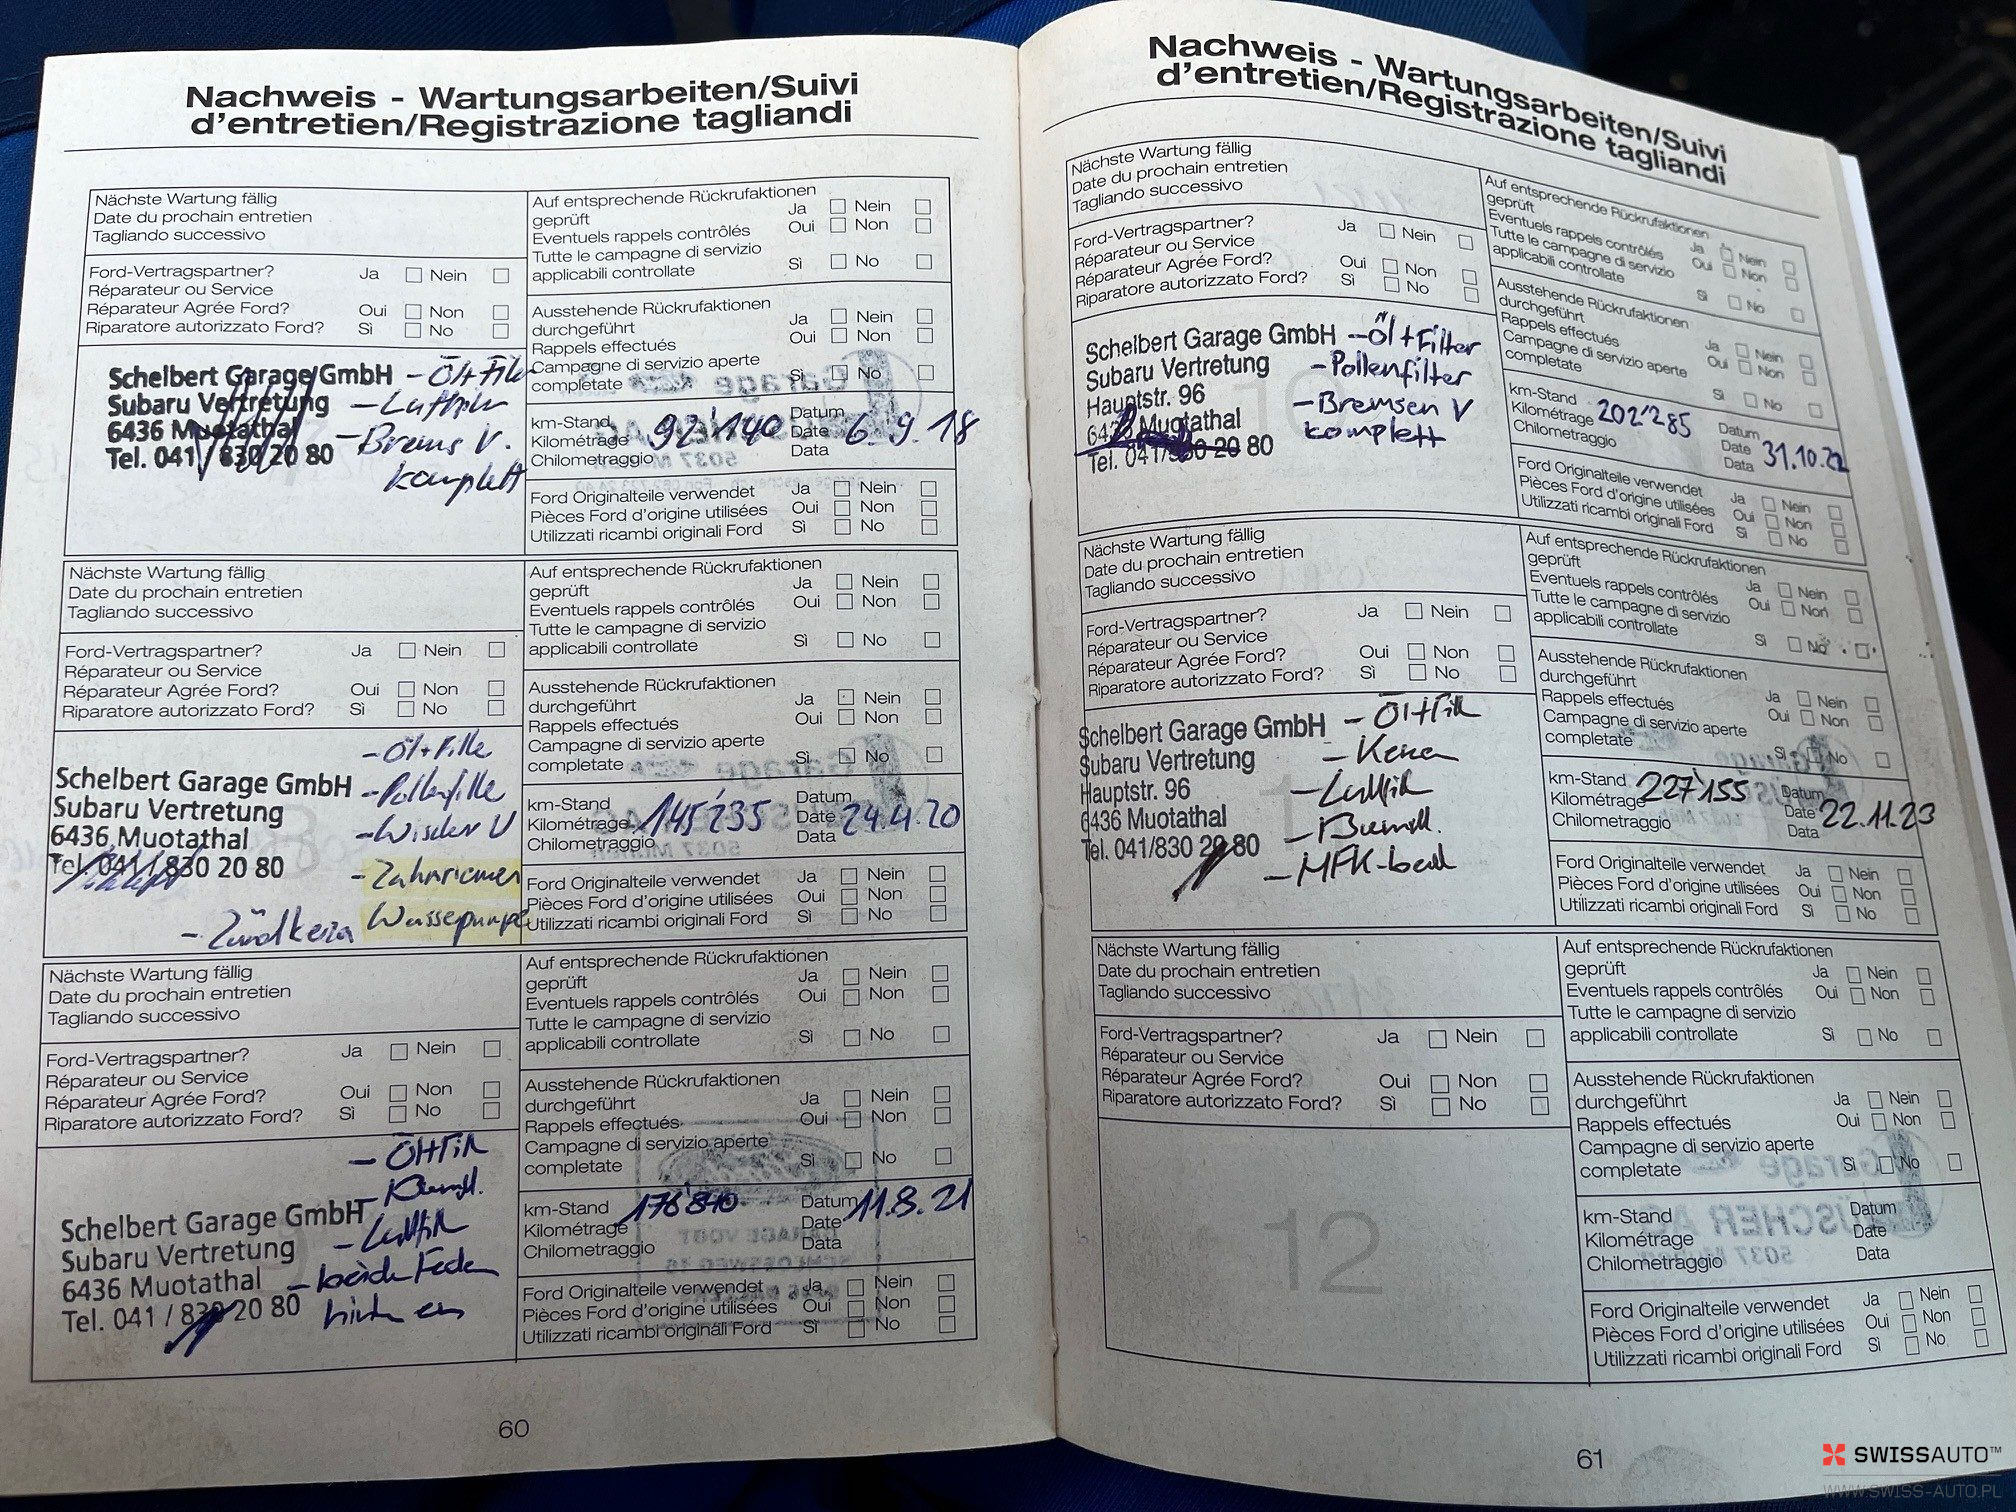 Nachweis - Wartungsarbeiten/Suivi
d'entretien/Registrazione tagliandi
Nächste Wartung fällig
Date du prochain entretien
Tagliando successivo
Ford-Vertragspartner? Ja Nein
Réparateur ou Service
Réparateur Agrée Ford? Oui Non
Riparatore autorizzato Ford? Sì No
Schelbert Garage GmbH
Subaru Vertretung
6436 Muotathal
Tel. 041 / 830 20 80
- Öl+Filter
- Brems V.
komplett
Auf entsprechende Rückrufaktionen
geprüft Ja Nein
Eventuels rappels contrôlés Oui Non
Tutte le campagne di servizio
applicabili controllate Sì No
Ausstehende Rückrufaktionen
durchgeführt Ja Nein
Rappels effectués Oui Non
Campagne di servizio aperte
completate Sì No
km-Stand Datum
Kilométrage 92'140 Date 6.9.18
Chilometraggio Data
Ford Originalteile verwendet Ja Nein
Pièces Ford d'origine utilisées Oui Non
Utilizzati ricambi originali Ford Sì No
Nächste Wartung fällig
Date du prochain entretien
Tagliando successivo
Ford-Vertragspartner? Ja Nein
Réparateur ou Service
Réparateur Agrée Ford? Oui Non
Riparatore autorizzato Ford? Sì No
- Öl+Filter
Schelbert Garage GmbH
- Pollenfilter
Subaru Vertretung
- Wischer V
6436 Muotathal
Tel. 041 / 830 20 80
- Zahnriemen
Wasserpumpe
- Zündkerzen
Auf entsprechende Rückrufaktionen
geprüft Ja Nein
Eventuels rappels contrôlés Oui Non
Tutte le campagne di servizio
applicabili controllate Sì No
Ausstehende Rückrufaktionen
durchgeführt Ja Nein
Rappels effectués Oui Non
Campagne di servizio aperte
completate Sì No
km-Stand Datum
Kilométrage 145'235 Date 24.4.20
Chilometraggio Data
Ford Originalteile verwendet Ja Nein
Pièces Ford d'origine utilisées Oui Non
Utilizzati ricambi originali Ford Sì No
Nächste Wartung fällig
Date du prochain entretien
Tagliando successivo
Ford-Vertragspartner? Ja Nein
Réparateur ou Service
Réparateur Agrée Ford? Oui Non
Riparatore autorizzato Ford? Sì No
- Öl+Filt
Schelbert Garage GmbH
- Luftfilt
Subaru Vertretung
6436 Muotathal
- beide Federn
Tel. 041 / 830 20 80
Auf entsprechende Rückrufaktionen
geprüft Ja Nein
Eventuels rappels contrôlés Oui Non
Tutte le campagne di servizio
applicabili controllate Sì No
Ausstehende Rückrufaktionen
durchgeführt Ja Nein
Rappels effectués Oui Non
Campagne di servizio aperte
completate Sì No
km-Stand Datum 11.8.21
Kilométrage Date
Chilometraggio Data
Ford Originalteile verwendet Ja Nein
Pièces Ford d'origine utilisées Oui Non
Utilizzati ricambi originali Ford Sì No
60
Nachweis - Wartungsarbeiten/Suivi
d'entretien/Registrazione tagliandi
Nächste Wartung fällig
Date du prochain entretien
Tagliando successivo
Ford-Vertragspartner? Ja Nein
Réparateur ou Service
Réparateur Agrée Ford? Oui Non
Riparatore autorizzato Ford? Sì No
Schelbert Garage GmbH - Öl+Filter
Subaru Vertretung - Pollenfilter
Hauptstr. 96 - Bremsen V
6436 Muotathal komplett
Tel. 041/830 20 80
Auf entsprechende Rückrufaktionen
geprüft Ja Nein
Eventuels rappels contrôlés Oui Non
Tutte le campagne di servizio
applicabili controllate Sì No
Ausstehende Rückrufaktionen
durchgeführt Ja Nein
Rappels effectués Oui Non
Campagne di servizio aperte
completate Sì No
km-Stand Datum
Kilométrage 202'285 Date 31.10.22
Chilometraggio Data
Ford Originalteile verwendet Ja Nein
Pièces Ford d'origine utilisées Oui Non
Utilizzati ricambi originali Ford Sì No
Nächste Wartung fällig
Date du prochain entretien
Tagliando successivo
Ford-Vertragspartner? Ja Nein
Réparateur ou Service
Réparateur Agrée Ford? Oui Non
Riparatore autorizzato Ford? Sì No
Schelbert Garage GmbH - Öl+Filt
Subaru Vertretung - Kerzen
Hauptstr. 96 - Luftfilt
6436 Muotathal
Tel. 041/830 20 80
Auf entsprechende Rückrufaktionen
geprüft Ja Nein
Eventuels rappels contrôlés Oui Non
Tutte le campagne di servizio
applicabili controllate Sì No
Ausstehende Rückrufaktionen
durchgeführt Ja Nein
Rappels effectués Oui Non
Campagne di servizio aperte
completate Sì No
km-Stand Datum
Kilométrage 227'155 Date 22.11.23
Chilometraggio Data
Ford Originalteile verwendet Ja Nein
Pièces Ford d'origine utilisées Oui Non
Utilizzati ricambi originali Ford Sì No
Nächste Wartung fällig
Date du prochain entretien
Tagliando successivo
Ford-Vertragspartner? Ja Nein
Réparateur ou Service
Réparateur Agrée Ford? Oui Non
Riparatore autorizzato Ford? Sì No
12
Auf entsprechende Rückrufaktionen
geprüft Ja Nein
Eventuels rappels contrôlés Oui Non
Tutte le campagne di servizio
applicabili controllate Sì No
Ausstehende Rückrufaktionen
durchgeführt Ja Nein
Rappels effectués Oui Non
Campagne di servizio aperte
completate Sì No
km-Stand Datum
Kilométrage Date
Chilometraggio Data
Ford Originalteile verwendet Ja Nein
Pièces Ford d'origine utilisées Oui Non
Utilizzati ricambi originali Ford Sì No
61
SWISSAUTO™
WWW.SWISS-AUTO.PL